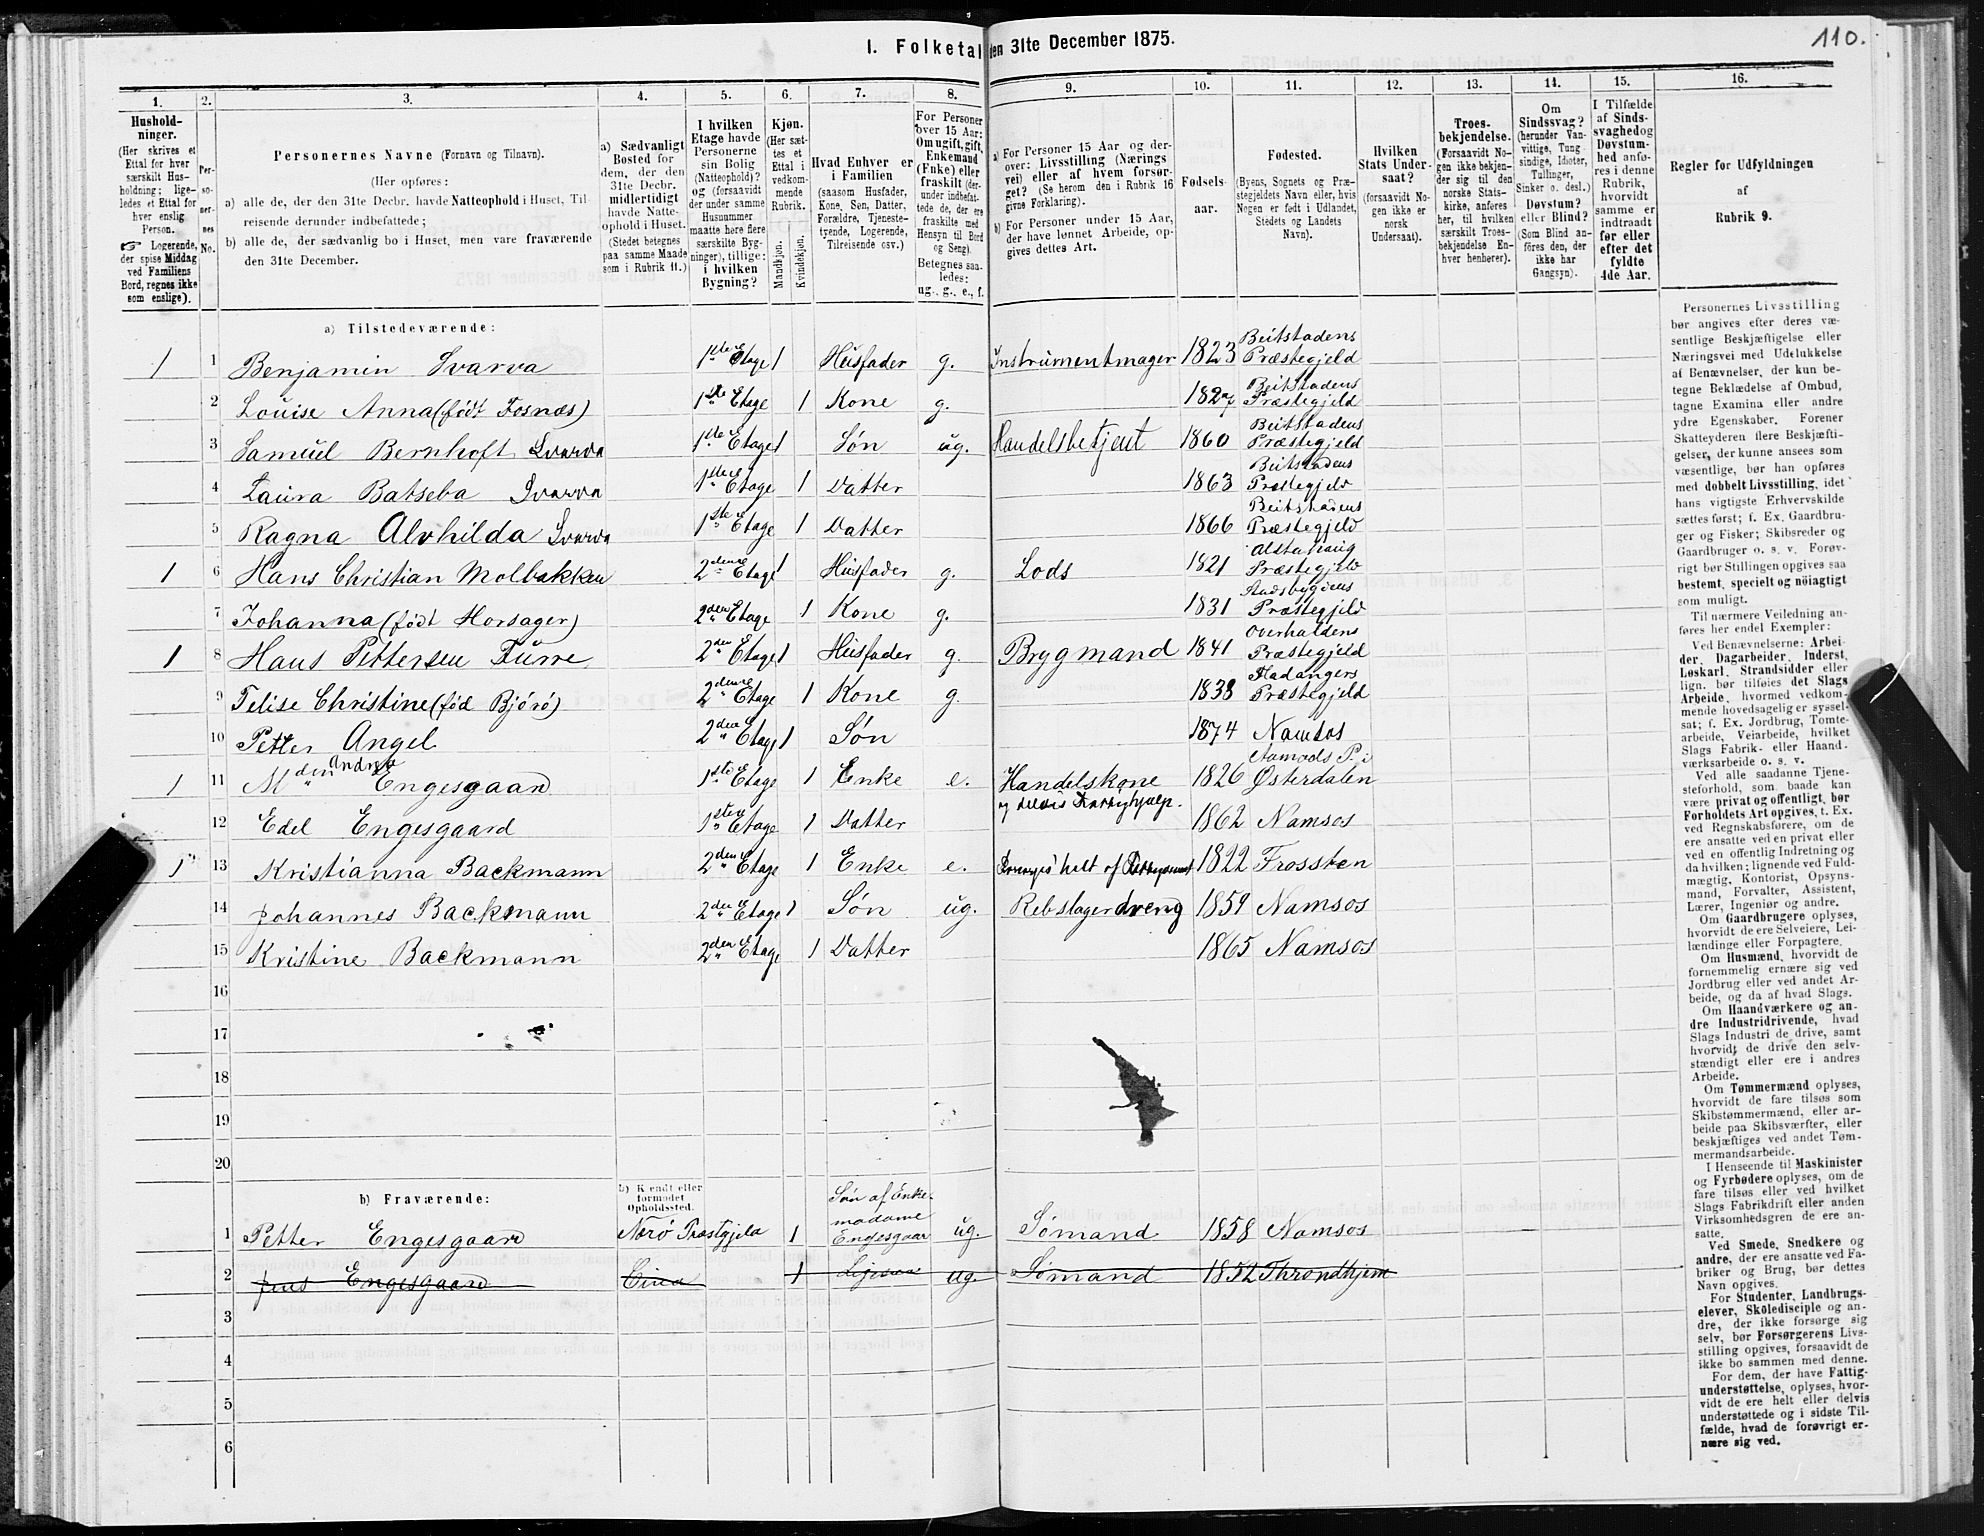 110.
I. Folketal den 31te December 1875.
1. 2. 3. 4. 5. 6. 7. 8. 9. 10. 11. 12. 13. 14. 15. 16.
Hushold-
ninger.
(Her skrives et
Ettal for hver
særskilt Hus-
holdning; lige-
ledes et Ettal for
hver enslig
Person.
☞ Logerende,
der spise Middag
ved Familiens
Bord, regnes ikke
som enslige).
Per-
so-
ner-
nes
No.
Personernes Navne (Fornavn og Tilnavn).
(Her opføres:
a) alle de, der den 31te Decbr. havde Natteophold i Huset, Til-
reisende derunder indbefattede;
b) alle de, der sædvanlig bo i Huset, men vare fraværende
den 31te December.
a) Sædvanligt
Bosted for
dem, der den
31te Decbr.
midlertidigt
havde Natte-
ophold i Huset.
(Stedet betegnes
paa samme Maade
som i Rubrik 11.)
I hvilken
Etage havde
Personerne
sin Bolig
(Natteophold)?
og (forsaavidt
der under samme
Husnummer
maatte høre flere
særskilte Byg-
ninger), tillige:
i hvilken
Bygning?
Kjøn.
(Her sæt-
tes et
Ettal i
vedkom-
mende
Rubrik.
Mandkjøn.
Kvindekjøn.
Hvad Enhver er
i Familien
(saasom Husfader,
Kone, Søn, Datter,
Forældre, Tjeneste-
tyende, Logerende,
Tilreisende osv.)
For Personer
over 15 Aar:
Om ugift, gift,
Enkemand
(Enke) eller
fraskilt (der-
under indbefat-
tede de, der ere
fraskilte med
Hensyn til Bord
og Seng).
Betegnes saa-
ledes:
ug., g., e., f.
a) For Personer 15 Aar og der-
over: Livsstilling (Nærings
vei) eller af hvem forsør-
get? (Se herom den i Rubrik 16
givne Forklaring).
b) For Personer under 15 Aar,
der have lønnet Arbeide, op-
gives dettes Art.
Fødsels-
aar.
Fødested.
(Byens, Sognets og Præ-
stegjeldets Navn eller, hvis
Nogen er født i Udlandet,
Stedets og Landets
Navn).
Hvilken
Stats Under-
saat?
(forsaavidt No-
gen ikke er
norsk
Undersaat).
Troes-
bekjendelse.
(Forsaavidt No-
gen ikke bekjen-
der sig til den
norske Stats-
kirke, anføres
her, til hvilken
særskilt Troes-
bekjendelse En-
hver henhører).
Om
Sindssvag?
(herunder Van-
vittige, Tung-
sindige, Idioter,
Tullinger,
Sinker o. desl.)
Døvstum?
eller Blind?
(Som Blind an-
føres den, der
ikke har
Gangsyn).
I Tilfælde
af Sinds-
svaghed og
Døvstum-
hed anfø-
res i denne
Rubrik,
hvorvidt
samme er
indtraadt
før eller
efter det
fyldte
4de Aar.
Regler for Udfyldningen
af
Rubrik 9.
a) Tilstedeværende:
1 1 Benjamin Svarva 1ste Etage 1 Husfader g. Instrumentmager 1823 Beitstadens Præstegjeld
2 Louise Anna (født Fosnæs) 1ste Etage 1 Kone g. 1827 Beitstadens Præstegjeld
3 Samuel Bernhoft Svarva 1ste Etage 1 Søn ug. Handelsbetjent 1860 Beitstadens Præstegjeld
4 Laura Batseba Svarva 1ste Etage 1 Datter 1863 Beitstadens Præstegjeld
5 Ragna Alvhilda Svarva 1ste Etage 1 Datter 1866 Beitstadens Præstegjeld
1 6 Hans Christian Molbakken 2den Etage 1 Husfader g. Lods 1821 Alstahaug Præstegjeld
7 Johanna (født Horsager) 2den Etage 1 Kone g. 1831 Stadsbygdens Præstegjeld
1 8 Hans Pettersen Furre 2den Etage 1 Husfader g. Brygmand 1841 Overhaldens Præstegjeld
9 Felise Christine (fød Bjørø) 2den Etage 1 Kone g. 1838 Fladangers Præstegjeld
10 Petter Angel 2den Etage 1 Søn 1874 Namsos
1 11 Mdm Andrea Engesgaard 1ste Etage 1 Enke e. Handelskone 1826 Aamods P. i Østerdalen
og delvis Fattighjælp.
12 Edel Engesgaard 1ste Etage 1 Datter 1862 Namsos
1 13 Kristianna Backmann 2den Etage 1 Enke e. helt af 1822 Frossten
14 Johannes Backmann 2den Etage 1 Søn ug. Rebslagerdreng 1859 Namsos
15 Kristine Backmann 2den Etage 1 Datter 1865 Namsos
16
17
18
19
20
b) Fraværende:
b) Kjendt eller
formodet
Opholdssted.
1 Petter Engesgaard Nærø Præstgjeld 1 Søn af Enke-madame Engesgaar ug. Sømand 1858 Namsos
2 Jens Engesgaard 1 ug. Sømand 1852 Throndhjem
3
4
5
6
Personernes Livsstilling
bør angives efter deres væ-
sentlige Beskjæftigelse eller
Næringsvei med Udelukkelse
af Benævnelser, der kun be-
tegne Beklædelse af Ombud,
tagne Examina eller andre
ydre Egenskaber. Forener
Skatteyderen flere Beskjæfti-
gelser, der kunne ansees som
væsentlige, bør han opføres
med dobbelt Livsstilling, idet
hans vigtigste Erhvervskilde
sættes først; f. Ex. Gaardbru-
ger og Fisker; Skibsreder og
Gaardbruger o. s. v. Forøv-
rigt bør Stillingen opgives saa
bestemt, specielt og nöiagtigt
som muligt.
Til nærmere Veiledning an-
føres her endel Exempler:
Ved Benævnelserne: Arbei-
der, Dagarbeider, Inderst,
Løskarl, Strandsidder eller
lign. bør tilføies det Slags
Arbeide, hvormed vedkom-
mende hovedsagelig er syssel-
sat; f. Ex. Jordbrug, Tomte-
arbeide, Veiarbeide, hvilket
Slags Fabrik- eller Haand-
værksarbeide o. s. v.
Ved alle saadanne Tjene-
steforhold, som baade kan
være privat og offentligt, bør
Forholdets Art opgives, t. Ex.
ved Regnskabsførere, om de
ere ansatte ved en privat eller
ved en offentlig Indretning og
da hvilken; lignende ved Fuld-
mægtig, Kontorist, Opsyns-
mand, Forvalter, Assistent,
Lærer, Ingeniør og andre.
Om Gaardbrugere oplyses,
hvorvidt de ere Selveiere, Lei-
lændinge eller Forpagtere.
Om Husmænd, hvorvidt de
fornemmelig ernære sig ved
Jordbrug eller ved andet Ar-
beide, og da af hvad Slags.
Om Haandværkere og an-
dre Industridrivende, hvad
Slags Industri de drive, samt
hvorvidt de drive den selv-
stændigt eller ere i andres
Arbeide.
Om Tømmermænd oplyses,
hvorvidt de fare tilsøs som
Skibstømmermænd, eller ar-
beide paa Skibsværfter, eller
beskjæftiges ved andet Tøm-
mermandsarbeide.
I Henseende til Maskinister
og Fyrbødere oplyses, om de
fare tilsøs eller ved hvilket
Slags Fabrikdrift eller anden
Virksomhedsgren de ere an-
satte.
Ved Smede, Snedkere og
andre, der ere ansatte ved Fa-
briker og Brug, bør dettes
Navn opgives.
For Studenter, Landbrugs-
elever, Skoledisciple og an-
dre, der ikke forsørge sig
selv, bør Forsørgerens Livs-
stilling opgives, forsaavidt de
ikke bo sammen med denne.
For dem, der have Fattig-
understøttelse, oplyses, hvor-
vidt de ere helt eller delvis
understøttede og i sidste Til-
fælde, hvad de forøvrigt er-
nære sig ved.